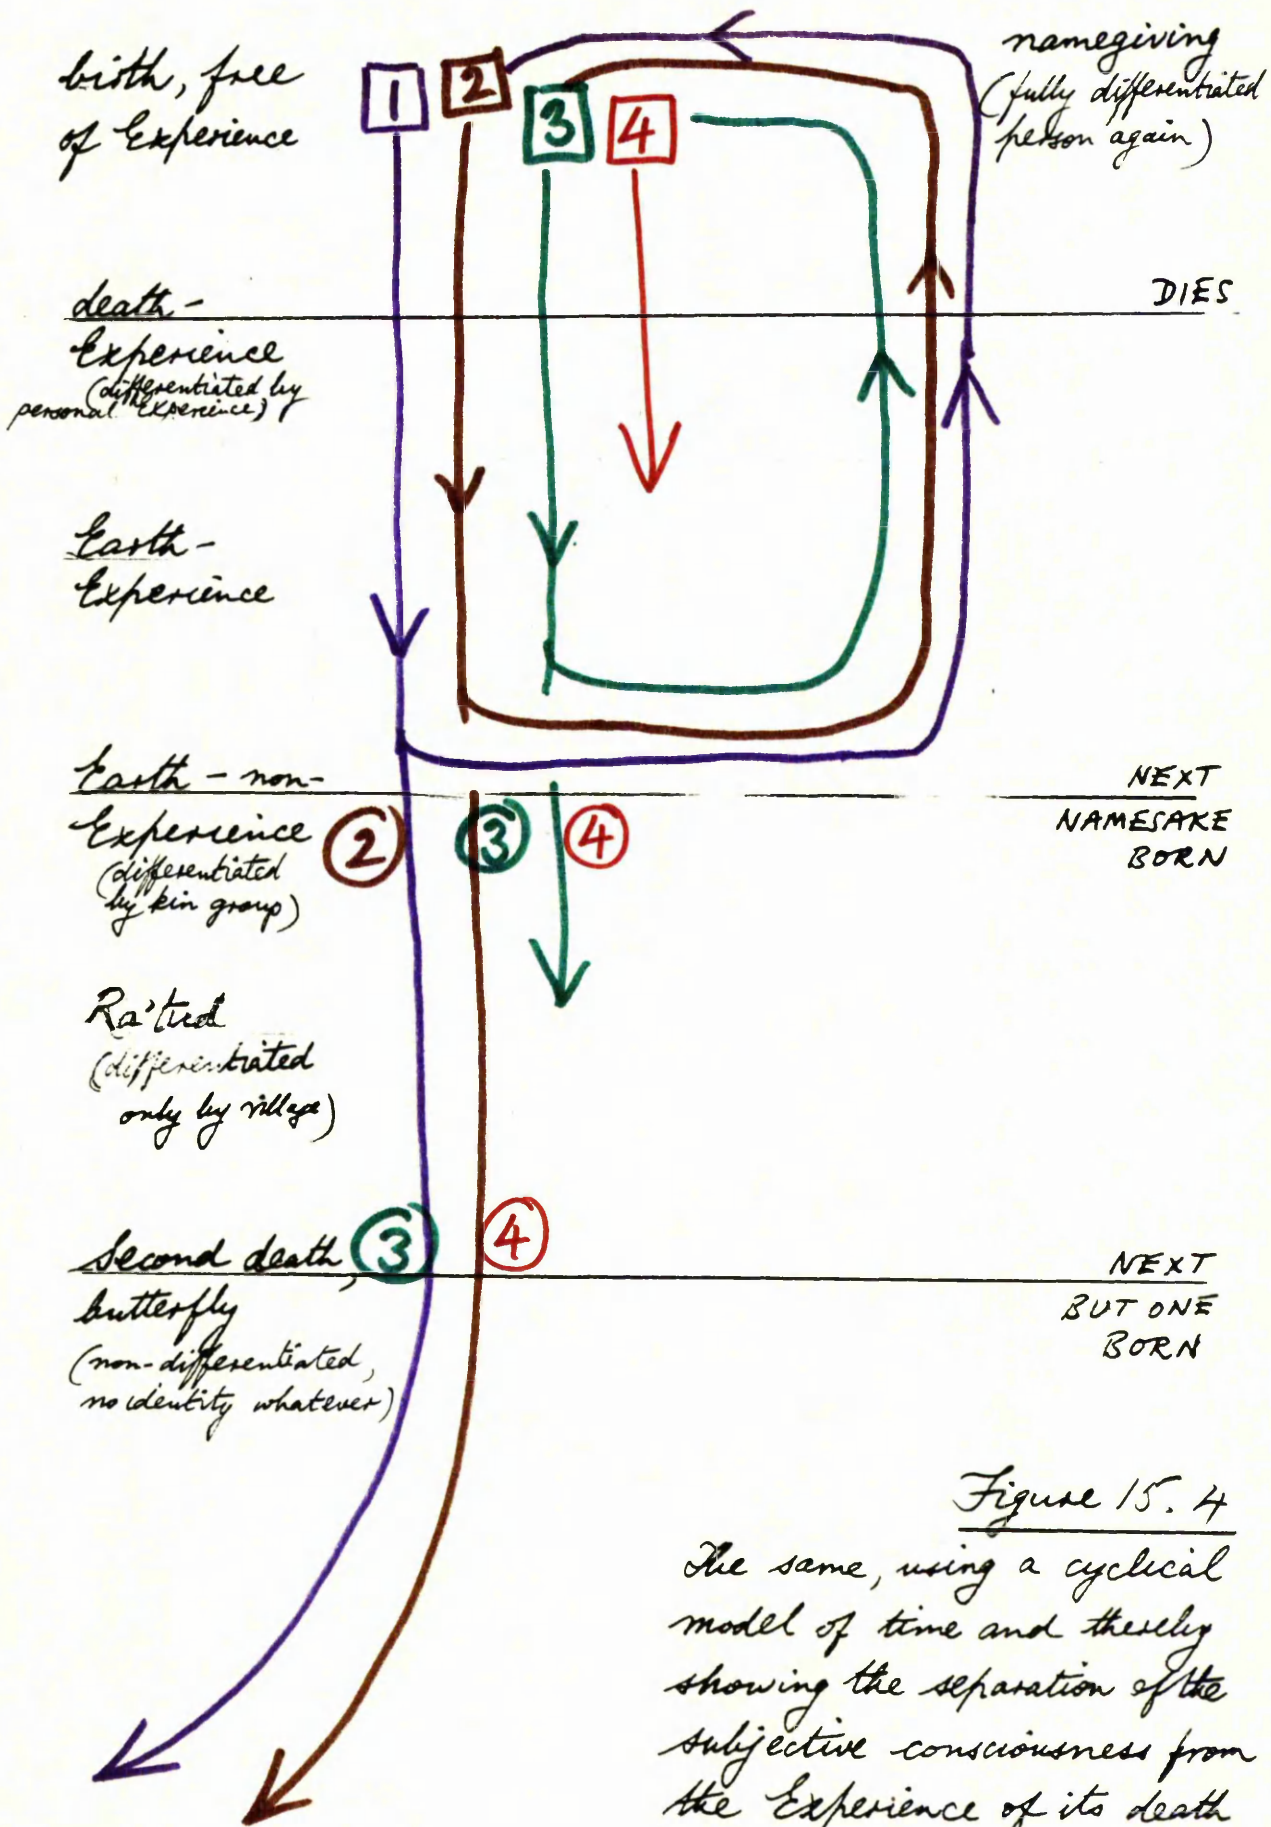 birth, free
of Experience
1
2
3
4
namegiving
(fully differentiated
person again)
death -
DIES
Experience
(differentiated by
personal Experience)
Earth -
Experience
Earth - non-
NEXT
Experience
(differentiated
by kin group)
2
3
4
NAMESAKE
BORN
Ra'tud
(differentiated
only by village)
3
4
Second death,
NEXT
butterfly
(non-differentiated,
no identity whatever)
BUT ONE
BORN
Figure 15.4
The same, using a cyclical
model of time and thereby
showing the separation of the
subjective consciousness from
the Experience of its death